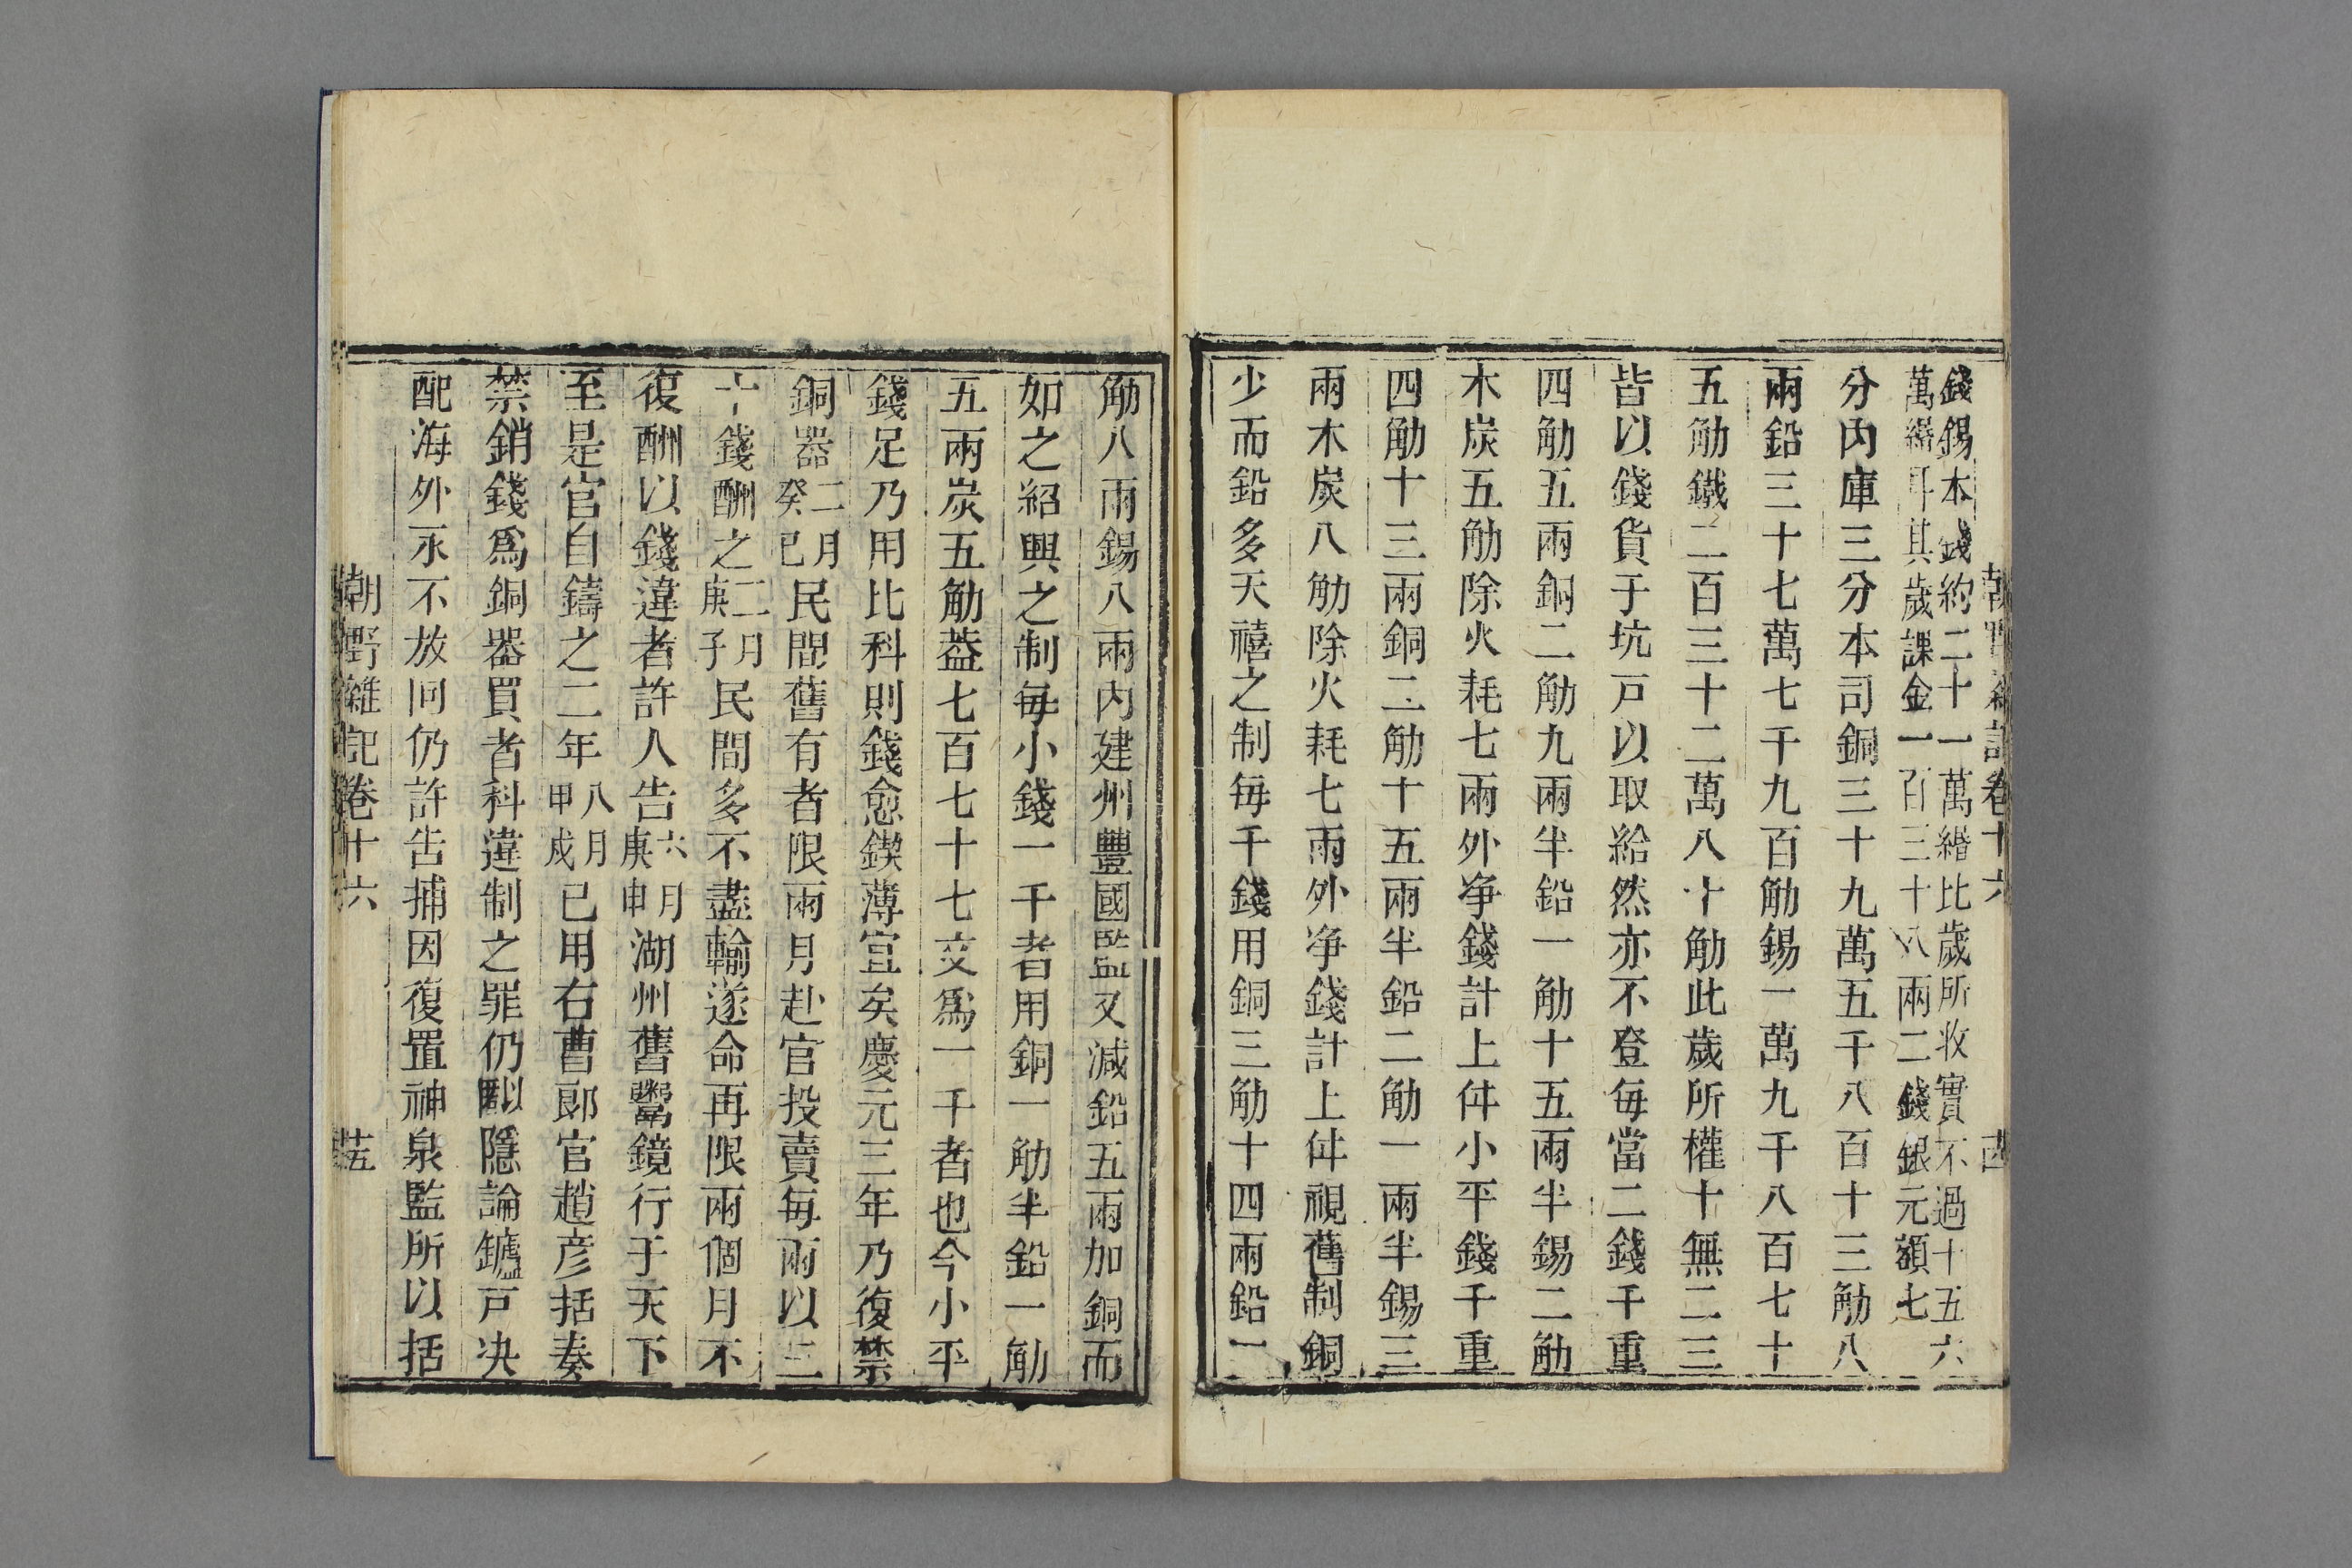 朝野雜記卷十六
錢錫本錢約二十一萬緡比歲所收實不過十五六
萬緡耳其歲課金一百三十八兩二錢銀元額七
分內庫三分本司銅三十九萬五千八百十三觔八
兩鉛三十七萬七千九百觔錫一萬九千八百七十
五觔鐵二百三十二萬八十觔此歲所權十無二三
皆以錢貨于坑戸以取給然亦不登每當二錢千重
四觔五兩銅二觔九兩半鉛一觔十五兩半錫二觔
木炭五觔除火耗七兩外净錢計上件小平錢千重
四觔十三兩銅二觔十五兩半鉛二觔一兩半錫三
兩木炭八觔除火耗七兩外净錢計上件視舊制銅
少而鉛多天禧之制每千錢用銅三觔十四兩鉛一
觔八兩錫八兩内建州豐國監又減鉛五兩加銅而
如之紹興之制每小錢一千者用銅一觔半鉛一觔
五兩炭五觔葢七百七十七文爲一千者也今小平
錢足乃用比科則錢愈鍥薄宜矣慶元三年乃復禁
銅器二月癸巳民間舊有者限兩月赴官投賣每兩以三
十錢酬之二月庚子民間多不盡輸遂命再限兩個月不
復酬以錢違者許人告六月庚申湖州舊鬻鏡行于天下
至是官自鑄之二年八月甲戌已用右曹郎官趙彦括奏
禁銷錢爲銅器買者科違制之罪仍以隱論鑪戸决
配海外永不放囘仍許告捕因復置神泉監所以括
朝野雜記卷十六